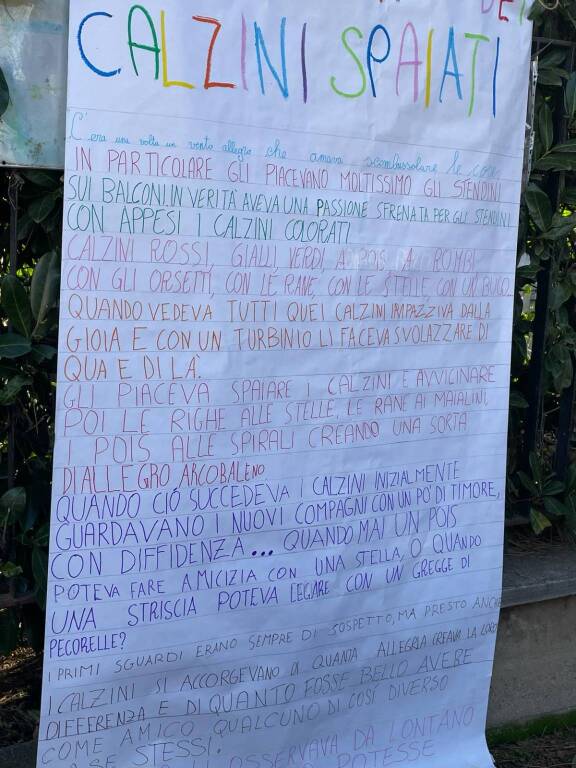 DEI
CALZINI SPAIATI
C'era una volta un vento allegro che amava scombussolare le cose
IN PARTICOLARE GLI PIACEVANO MOLTISSIMO GLI STENDINI
SUI BALCONI. IN VERITÀ AVEVA UNA PASSIONE SFRENATA PER GLI STENDINI
CON APPESI I CALZINI COLORATI
CALZINI ROSSI, GIALLI, VERDI, A POIS, A ROMBI
CON GLI ORSETTI, CON LE RANE, CON LE STELLE, CON UN BUCO.
QUANDO VEDEVA TUTTI QUEI CALZINI IMPAZZIVA DALLA
GIOIA E CON UN TURBINIO LI FACEVA SVOLAZZARE DI
QUA E DI LÀ.
GLI PIACEVA SPAIARE I CALZINI E AVVICINARE
POI LE RIGHE ALLE STELLE, LE RANE AI MAIALINI,
I POIS ALLE SPIRALI CREANDO UNA SORTA
DI ALLEGRO ARCOBALENO
QUANDO CIÓ SUCCEDEVA I CALZINI INIZIALMENTE
GUARDAVANO I NUOVI COMPAGNI CON UN PO' DI TIMORE,
CON DIFFIDENZA... QUANDO MAI UN POIS
POTEVA FARE AMICIZIA CON UNA STELLA, O QUANDO
UNA STRISCIA POTEVA LEGARE CON UN GREGGE DI
PECORELLE?
I PRIMI SGUARDI ERANO SEMPRE DI SOSPETTO, MA PRESTO ANCHE
I CALZINI SI ACCORGEVANO DI QUANTA ALLEGRIA CREAVA LA LORO
DIFFERENZA E DI QUANTO FOSSE BELLO AVERE
COME AMICO QUALCUNO DI COSÍ DIVERSO
DA SE STESSI.
OSSERVAVA DA LONTANO
POTESSE